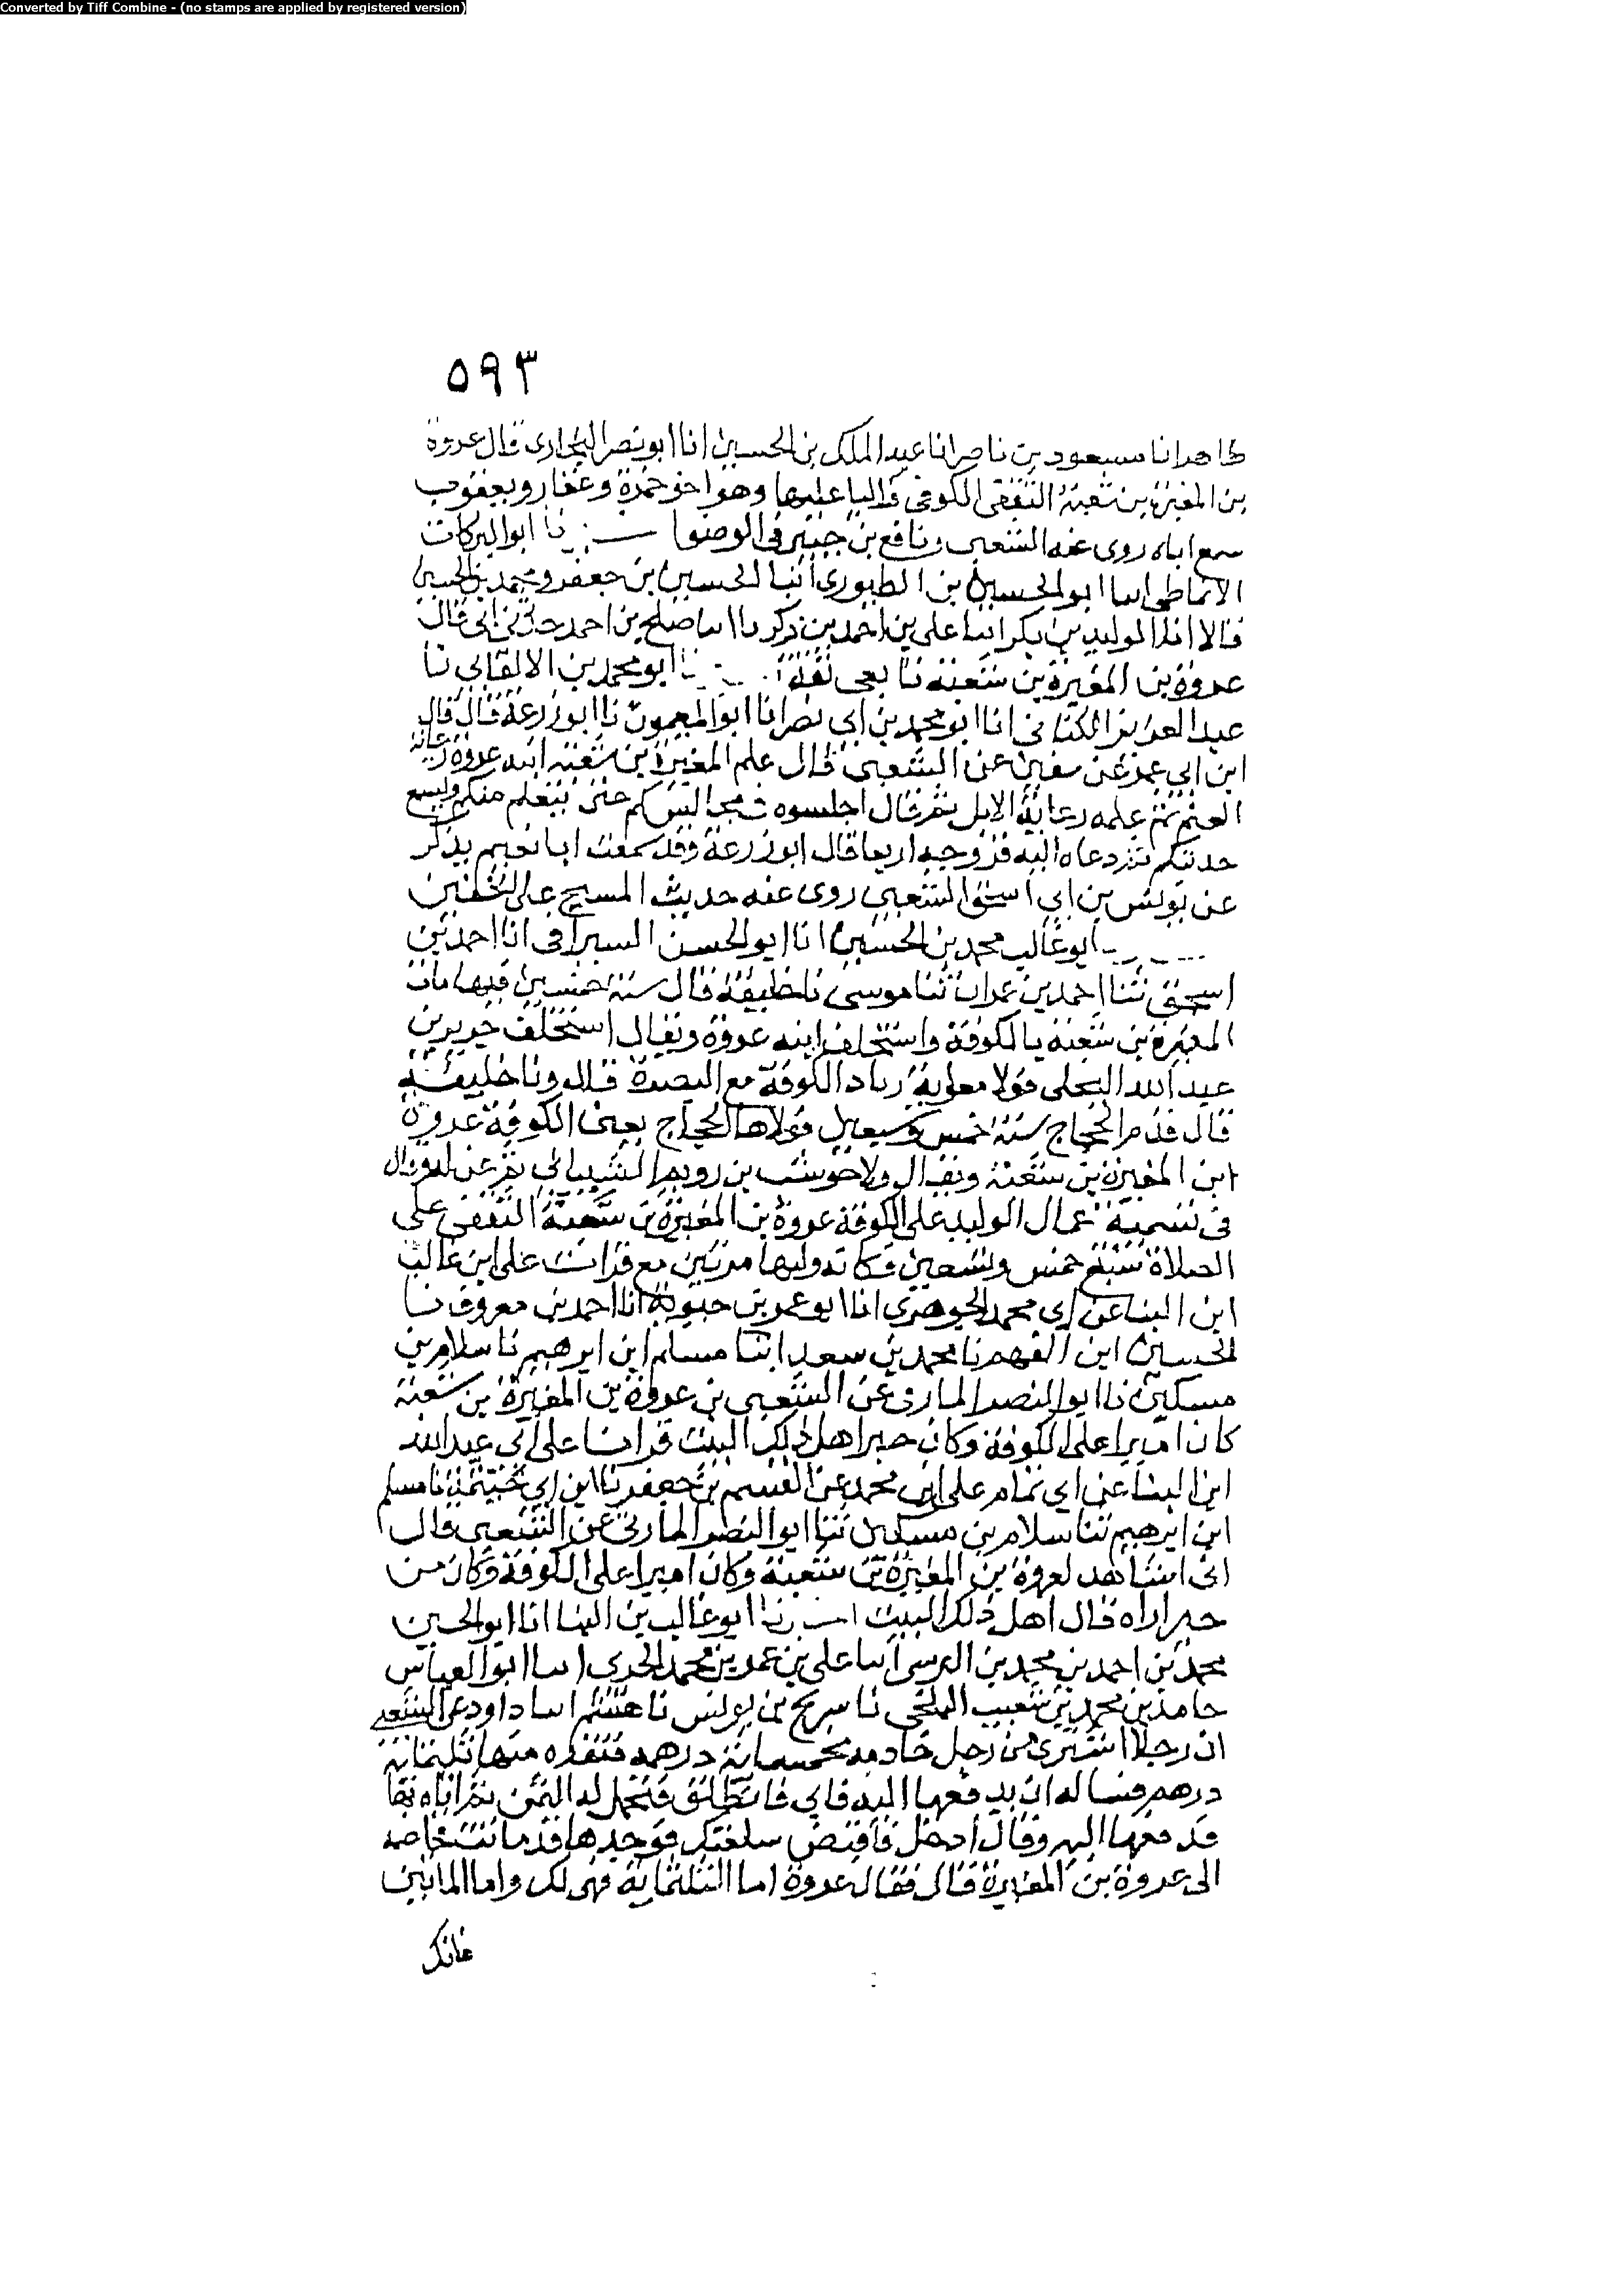 Converted by Tiff Combine - (no stamps are applied by registered version)
٥٩٣
طاهر انا مسعود بن ناصر انا عبد الملك بن الحسين انا ابو نصر البخارى قال عروة
بن المغيرة بن شعبة الثقفى الكوفى واليا عليها وهو اخو حمزة وعفار ويعفوب
سمع اباه روى عنه الشعبى ونافع بن جبير فى الوضوا نا ابو البركات
الانماطى انبا ابو الحسين بن الطيورى انبا الحسين بن جعفر ومحمد بن الحسين
قالا انا الوليد بن بكر انبا على بن احمد بن زكريا انبا صلح بن احمد حدثنى ابى قال
عروة بن المغيرة بن شعبة تابعى ثقة نا ابو محمد بن الاكفانى نا
عبد العزيز الكتانى انا ابو محمد بن ابى نصر انا ابو الميمون نا ابو زرعة قال قال
ابن ابى عمر عن سفين عن الشعبى قال علم المغيرة بن شعبة ابنه عروة رعاية
الغنم ثم علمه رعاية الابل ثم قال اجلسوه فى مجالسكم حتى يتعلم منكم ويسمع
حديثكم ثم دعاه اليه فزوجه اربعا قال ابو زرعة وقد سمعت ابا نعيم يذكر
عن يونس بن ابى اسحق الشعبى روى عنه حديث المسح على الخفين
ابو غالب محمد بن الحسين انا ابو الحسن السيرافى انا احمد بن
اسحق ثنا احمد بن عمران ثنا موسى نا خليفة قال سنة خمسين فيها مات
المغيرة بن شعبة بالكوفة واستخلف ابنه عروة ويقال استخلف جرير بن
عبد الله البجلى فولا معوية زياد الكوفة مع البصرة قال ونا خليفة
قال قدم الحجاج سنة خمس وسبعين فولاها الحجاج يعنى الكوفة عروة
ابن المغيرة بن شعبة ويقال ولا حوشب بن رويم الشيبانى ثم عزله وقال
فى تسمية عمال الوليد على الكوفة عروة بن المغيرة بن شعبة الثقفى على
الصلاة سنة خمس وتسعين وكا ته وليها مرتين مع قرات على ابن غالب
ابن البنا عن ابى محمد الجوهرى انا ابو عمر بن حيوية انا احمد بن معروف نا
الحسين ابن الفهم نا محمد بن سعد انبا مسلم ابن ابرهيم نا سلام بن
مسكين نا ابو النضر المازنى عن الشعبى بن عروة بن المغيرة بن شعبة
كان اميرا على الكوفة وكان خير اهل ذلك البيت قرانا على ابى عبد الله
ابن البنا عن ابى تمام على ابن محمد عن القسم بن جعفر نا ابن ابى خيثمة نا مسلم
ابن ابرهيم ثنا سلام بن مسكين ثنا ابو النضر المازنى عن الشعبى قال
انى اشاهد لعروة بن المغيرة بن شعبة وكان اميرا على الكوفة وكان من
خير اراه قال اهل ذلك البيت نا ابو غالب بن البنا انا ابو الحسين
محمد بن احمد بن محمد بن النرسى انبا على بن عمر بن محمد الحربى انبا ابو العباس
حامد بن محمد بن شعيب البلخى نا سريج بن يونس نا هشيم انبا داود عن الشعبى
ان رجلا اشترى من رجل خادمه بخمسمائة درهم فنقده منها ثلثمائة
درهم فساله ان يدفعها اليه فابى فانطلق فتحمل له الثمن ثم اتاه بها
فدفعها اليه وقال ادخل فاقبض سلعتك فوجدها قد ماتت فخاصمه
الى عروة بن المغيرة قال فقال عروة اما الثلثمائة فهى لك واما المايتين